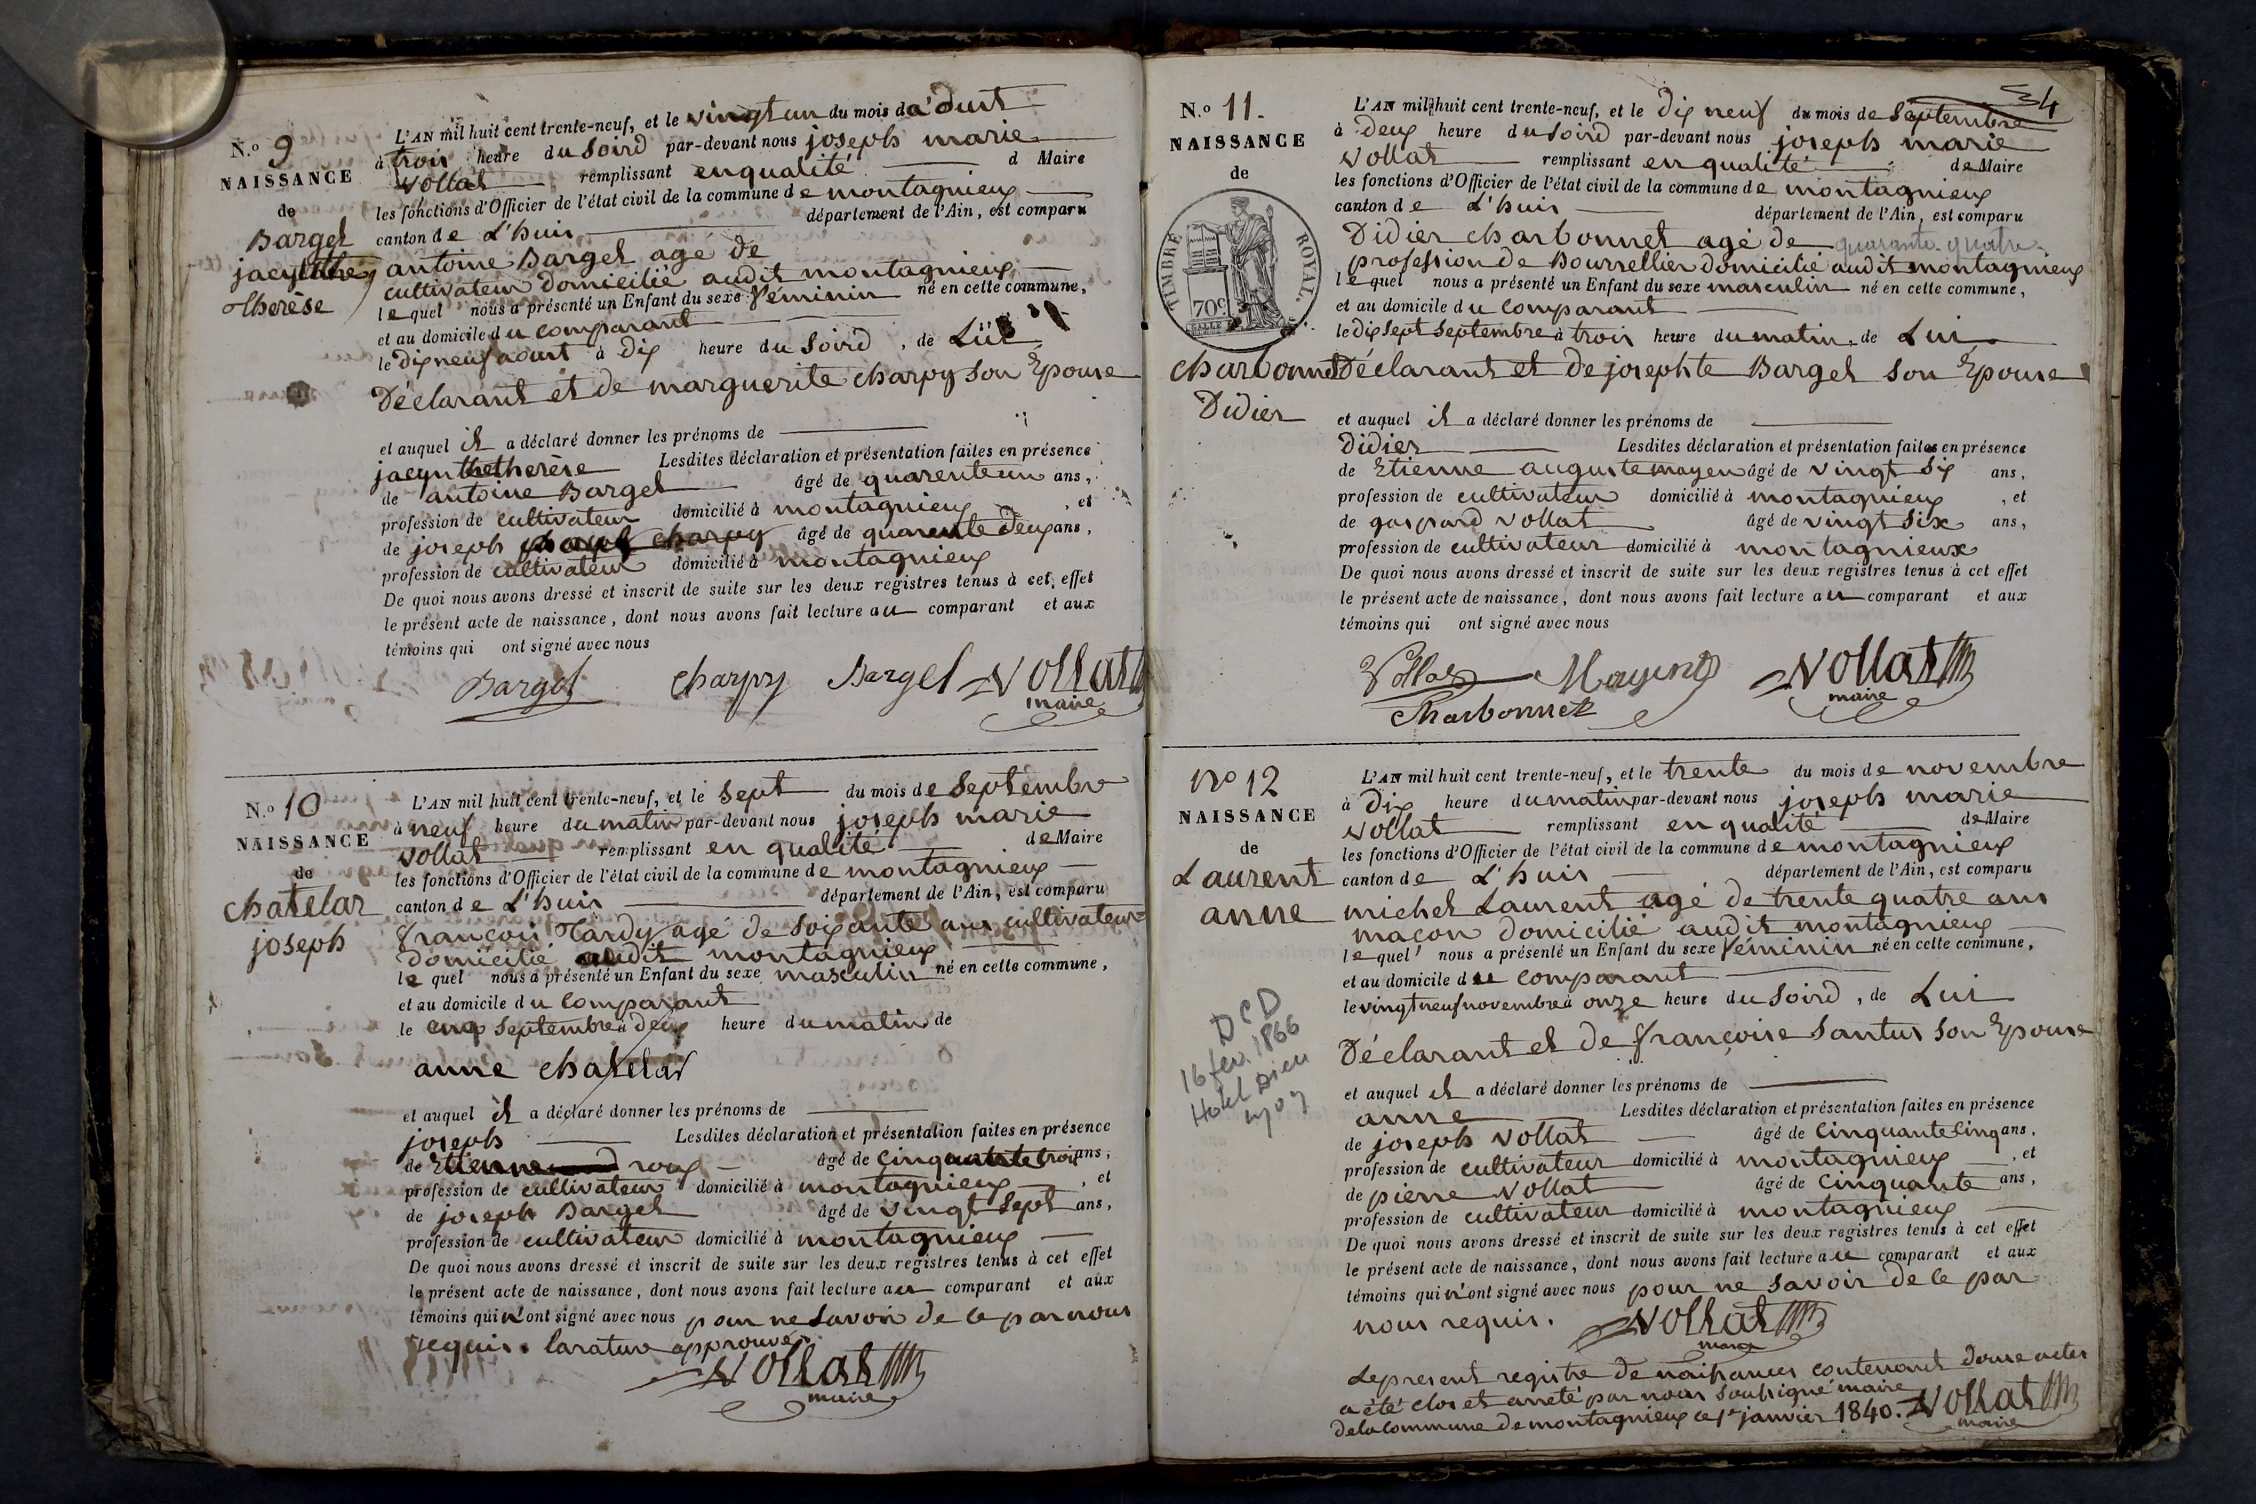 N.º 9
NAISSANCE
de
Bargel
jacynthe
therèse
L'AN mil huit cent trente-neuf, et le vingt un du mois d'a'oust
à trois heure du Soird par-devant nous joseph marie
Vollat remplissant en qualité d Maire
les fonctions d'Officier de l'état civil de la commune de montagnieux
canton de L'huis département de l'Ain, est comparu
antoine Bargel agé de
cultivateur domicilié audit montagnieux
lequel nous a présenté un Enfant du sexe Féminin né en cette commune,
et au domicile du comparant
le dix neuf aoust à dix heure du Soird, de Lui
Déclarant et de marguerite charpy son Epouse
et auquel il a déclaré donner les prénoms de
jacynthe therèse Lesdites déclaration et présentation faites en présence
de antoine Bargel âgé de quarente un ans,
profession de cultivateur domicilié à montagnieux, et
de joseph charpy âgé de quarente deux ans,
profession de cultivateur domicilié à montagnieux
De quoi nous avons dressé et inscrit de suite sur les deux registres tenus à cet effet
le présent acte de naissance, dont nous avons fait lecture au comparant et aux
témoins qui ont signé avec nous
Bargel charpy Bargel Vollat
maire
N.º 10
NAISSANCE
de
chatelar
joseph
L'AN mil huit cent trente-neuf, et le sept du mois de Septembre
à neuf heure du matin par-devant nous joseph marie
Vollat remplissant en qualité de Maire
les fonctions d'Officier de l'état civil de la commune de montagnieux
canton de L'huis département de l'Ain, est comparu
françois Tardy agé de Soixante ans cultivateur
domicilié audit montagnieux
lequel nous a présenté un Enfant du sexe masculin né en cette commune,
et au domicile du comparant
le cinq Septembre à deux heure du matin de
anne chatelar
et auquel il a déclaré donner les prénoms de
joseph Lesdites déclaration et présentation faites en présence
de Etienne roux âgé de cinquante trois ans,
profession de cultivateur domicilié à montagnieux, et
de joseph Bargel âgé de vingt Sept ans,
profession de cultivateur domicilié à montagnieux
De quoi nous avons dressé et inscrit de suite sur les deux registres tenus à cet effet
le présent acte de naissance, dont nous avons fait lecture au comparant et aux
témoins qui n'ont signé avec nous pour ne Savoir de ce par nous
requis. larature approuvé.
Vollat
maire
34
N.º 11.
NAISSANCE
de
TIMBRE ROYAL.
70c
charbonnet
Didier
L'AN mil huit cent trente-neuf, et le dix neuf du mois de Septembre
à deux heure du Soird par-devant nous joseph marie
Vollat remplissant en qualité de Maire
les fonctions d'Officier de l'état civil de la commune de montagnieux
canton de L'huis département de l'Ain, est comparu
Didier charbonnet agé de quarante quatre
profession de Bourrellier domicilié audit montagnieux
lequel nous a présenté un Enfant du sexe masculin né en cette commune,
et au domicile du comparant
le dix sept Septembre à trois heure du matin, de Lui
Déclarant et de josephte Bargel son Epouse
et auquel il a déclaré donner les prénoms de
Didier Lesdites déclaration et présentation faites en présence
de Etienne auguste mayen âgé de vingt Six ans,
profession de cultivateur domicilié à montagnieux, et
de gaspard Vollat âgé de vingt Six ans,
profession de cultivateur domicilié à montagnieux
De quoi nous avons dressé et inscrit de suite sur les deux registres tenus à cet effet
le présent acte de naissance, dont nous avons fait lecture au comparant et aux
témoins qui ont signé avec nous
Vollat Vollat
maire
Charbonnet
Nº 12
NAISSANCE
de
Laurent
anne
DCD
16 fev. 1866
Hotel Dieu
Lyon
L'AN mil huit cent trente-neuf, et le trente du mois de novembre
à dix heure du matin par-devant nous joseph marie
Vollat remplissant en qualité de Maire
les fonctions d'Officier de l'état civil de la commune de montagnieux
canton de L'huis département de l'Ain, est comparu
michel Laurent agé de trente quatre ans
maçon domicilié audit montagnieux
lequel nous a présenté un Enfant du sexe Féminin né en cette commune,
et au domicile du comparant
le vingt neuf novembre à onze heure du Soird, de Lui
Déclarant et de françoise Santus son Epouse
et auquel il a déclaré donner les prénoms de
anne Lesdites déclaration et présentation faites en présence
de joseph Vollat âgé de Cinquante Cinq ans,
profession de cultivateur domicilié à montagnieux, et
de pierre Vollat âgé de Cinquante ans,
profession de cultivateur domicilié à montagnieux
De quoi nous avons dressé et inscrit de suite sur les deux registres tenus à cet effet
le présent acte de naissance, dont nous avons fait lecture au comparant et aux
témoins qui n'ont signé avec nous pour ne Savoir de ce par
nous requis. Vollat
maire
Le present registre de naissances contenant douze actes
a été clos et arreté par nous soussigné maire
de la commune de montagnieux ce 1er janvier 1840. Vollat
maire